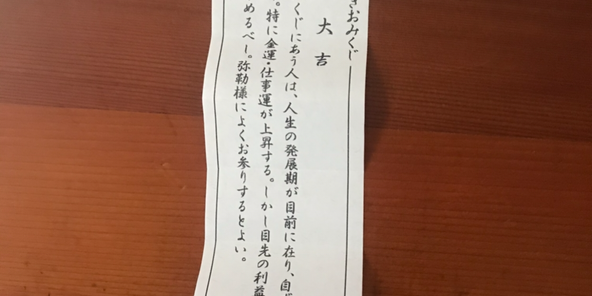 きおみくじ
大吉
くじにあう人は、人生の発展期が目前に在り、自
。特に金運・仕事運が上昇する。しかし目先の利益
めるべし。弥勒様によくお参りするとよい。